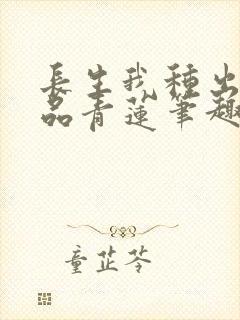 長生我種出
品青蓮筆趣
童芷苓